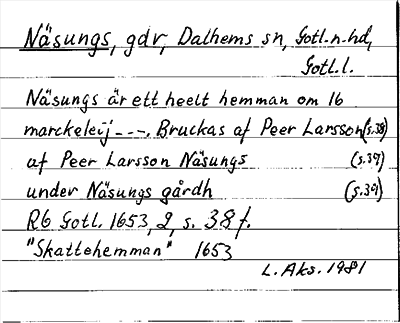 Näsungs, gdr, Dalhems sn, Gotl. n. hd,
Gotl. l.
Näsungs är ett heelt hemman om 16
marckeleij - - -. Bruckas af Peer Larsson (s. 38)
af Peer Larsson Näsungs (s. 39)
under Näsungs gårdh (s. 39)
RG Gotl. 1653, 2, s. 38 f.
"Skattehemman" 1653
L. Aks. 1981